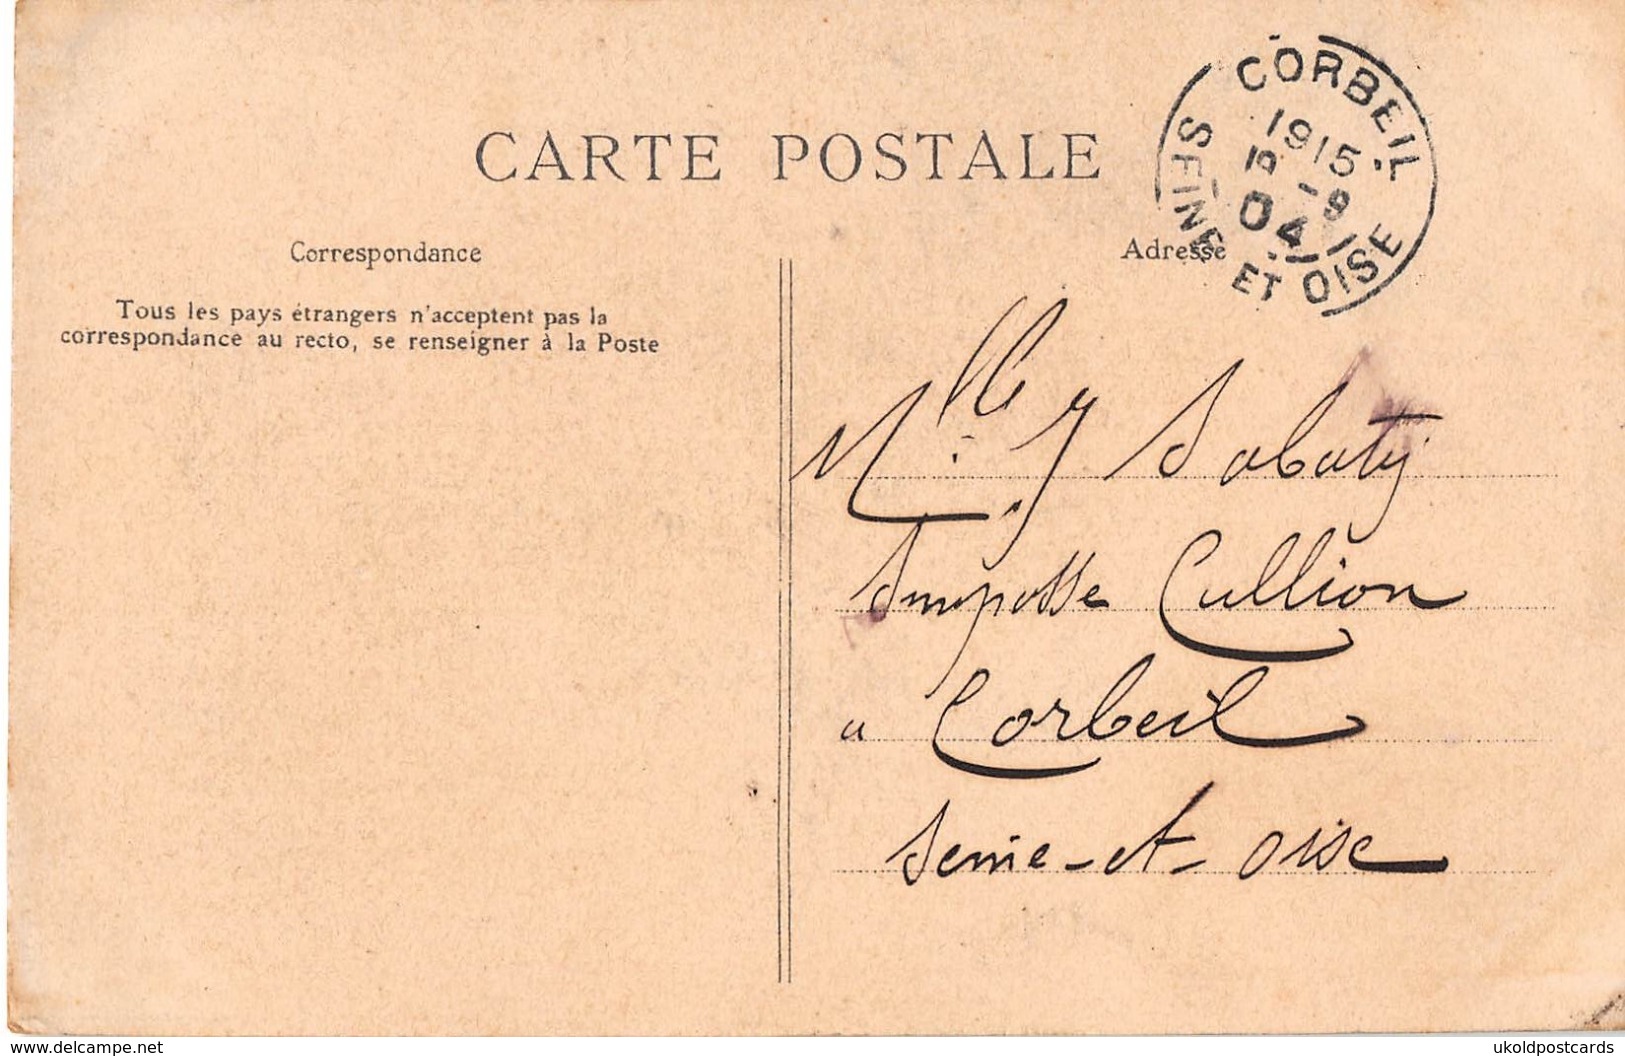 CARTE POSTALE
CORBEIL
1915
-9
04
SEINE ET OISE
Correspondance
Adresse
Tous les pays étrangers n'acceptent pas la
correspondance au recto, se renseigner à la Poste
Mlle. J Sabaty
Impasse Cullion
a Corbeil
Seine-et-Oise
www.delcampe.net
ukoldpostcards